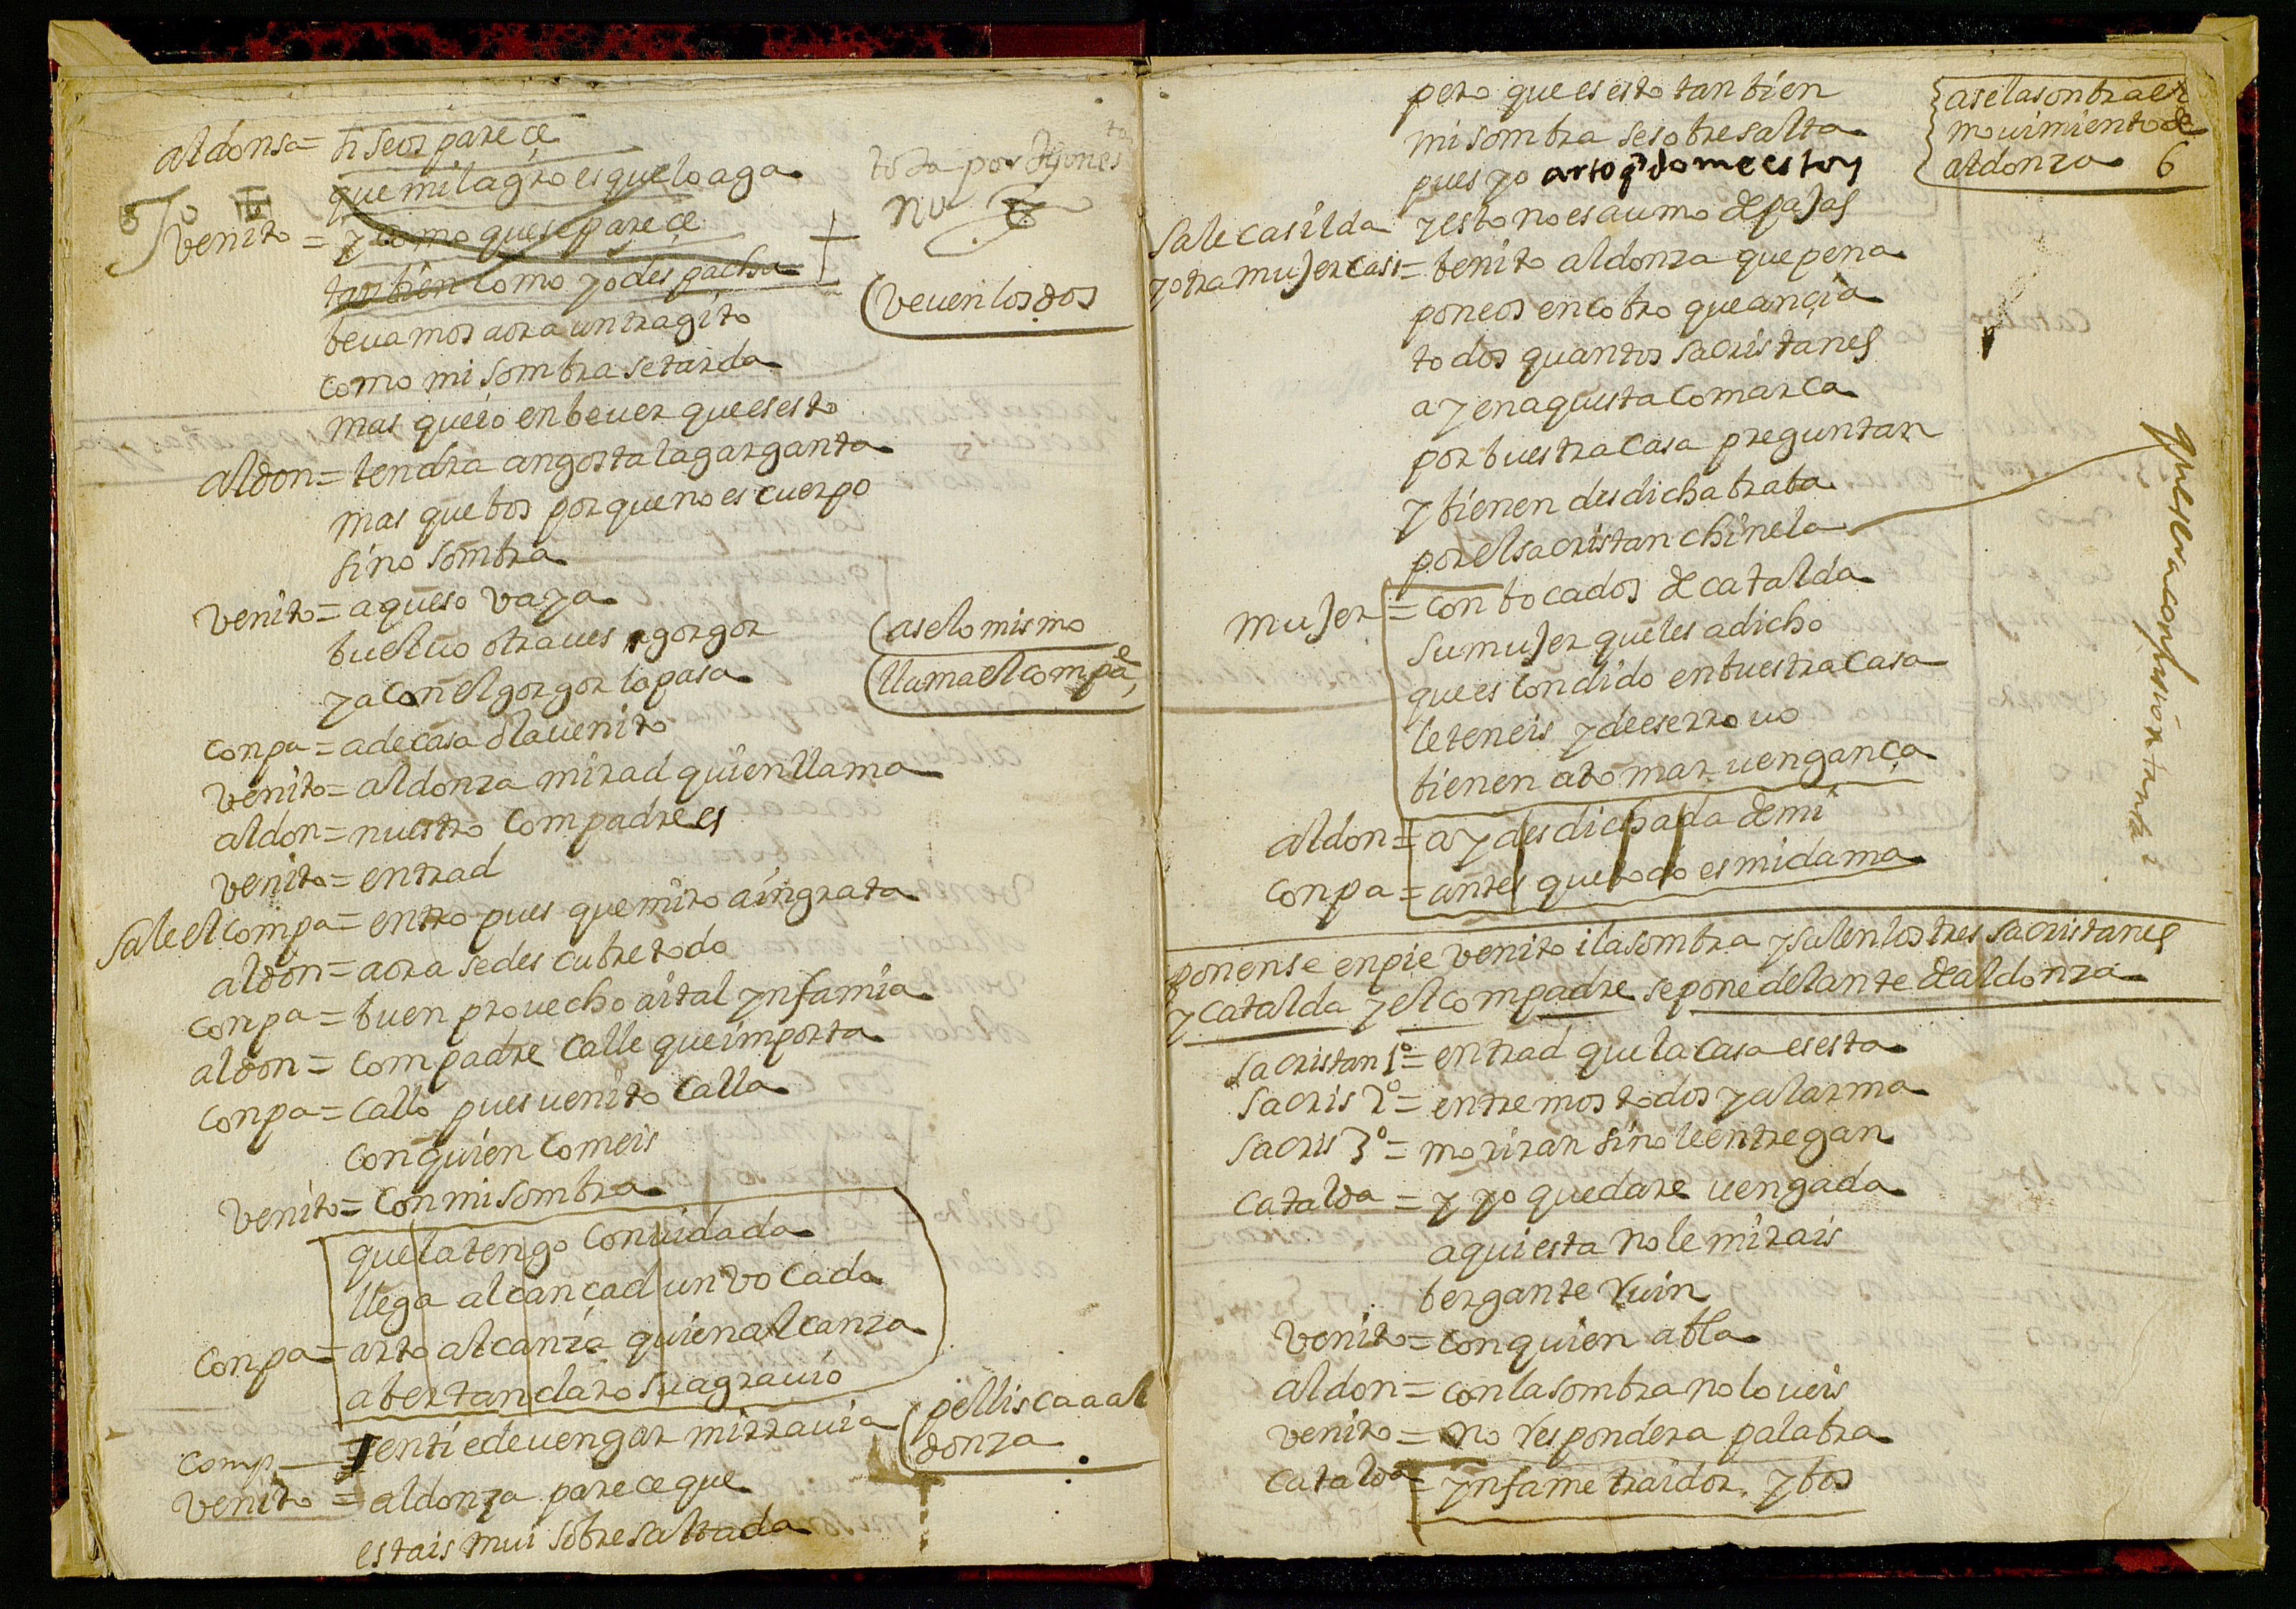 aldonsa = si seos pareçe
que milagro es que lo aga
venito = y como que se pareçe
tanbien como yo despacha
bevamos aora un tragito
(veuen los dos
como mi sombra se tarda
mas quéio en bever que es esto
aldon = tendra angosta la garganta
mas que bos porque no es cuerpo
sino sombra
venito = a queso vaya
buelvo otra ves gorgor
(ase lo mismo
ya con el gorgor lo pasa
(llama el compae
conpa = a de casa ola venito
venito = aldonza mirad quien llama
aldon = nuestro compadre es
venito = entrad
sale el compa = entro pues que miro a ingrata
aldon = aora se descubre todo
conpa = buen provecho ai tal ynfamia
aldon = compadre calle que importa
conpa = callo pues venito calla
con quien comeis
venito = con mi sombra
que la tengo convidada
llega alcançad un vocado
conpa = arto alcanza quien alcanza
a ber tan claro su agravio
comp = enti e de vengar mi rravia
(pellisca a al
donza
venito = aldonza parece que
estais mui sobresaltada
pero que es esto tanbien
mi sombra se sobresalta
pues yo arto qdo me estoy
ase la sonbra el
movimiento de
aldonza 6
sale casilda
y otra mujer
y esto no es aumo de pajas
casi = benito aldonza que pena
poneos en cobro que ançia
todos quantos sacristanes
ay en aquesta comarca
por buestra casa preguntan
y bienen desdicha braba
por el sacristan chinela
que sera confusion tanta
mujer = conbocados de catalda
su mujer que les a dicho
que escondido en buestra casa
le teneis y de ese rrovo
bienen a tomar vengança
aldon = ay desdichada de mi
conpa = antes que todo es mi dama
ponense en pie venito i la sombra y salen los tres sacristanes
y catalda y el compadre se pone delante de aldonza
sacristan 1º = entrad que la casa es esta
sacris 2º = entremos todos y al arma
sacris 3º = moriran si no le entregan
catalda = y yo quedare vengada
aqui esta no le mirais
bergante ruin
venito = con quien abla
aldon = con la sombra no lo veis
venito = no respondera palabra
catalda = ynfame traidor y bos